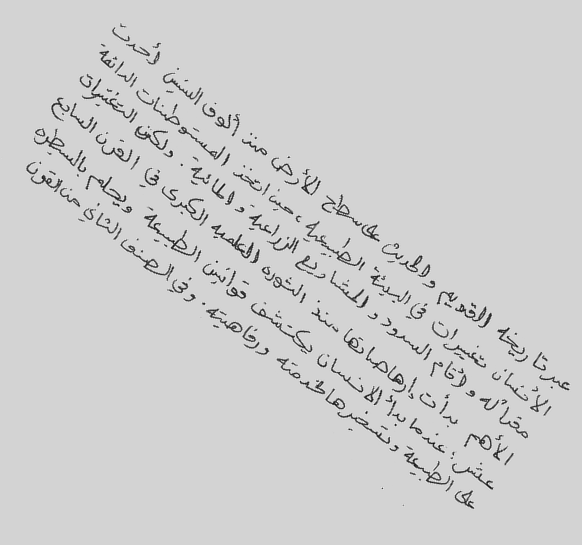 عبر تاريخه القديم والحديث على سطح الأرض منذ ألوف السنين أحدث
الأنسان تغييرات في البيئة الطبيعية، حين اتخذ المستوطنات الدائمة
مقرا له وأقام السدود والمشاريع الزراعية والمائية. ولكن التغييرات
الأهم بدأت إرهاصاتها منذ الثوره العلميه الكبرى في القرن السابع
عشر، عندما بدأ الانسان يكتشف قوانين الطبيعة ويحلم بالسيطره
على الطبيعة وتسخيرها لخدمته ورفاهيته. وفي النصف الثاني من القرن